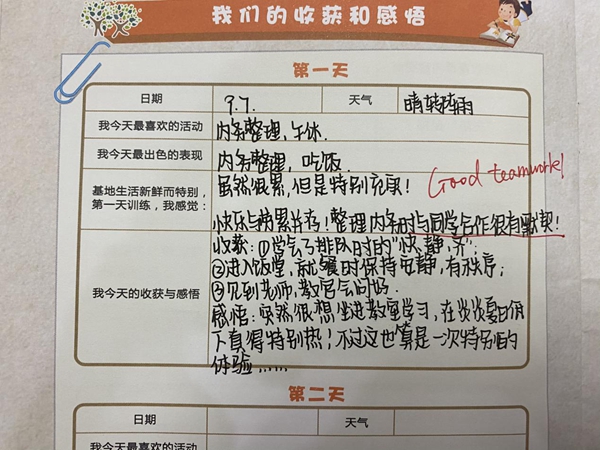 我们的收获和感悟
第一天
日期 9.7. 天气 晴转阵雨
我今天最喜欢的活动 内务整理,午休.
我今天最出色的表现 内务整理,吃饭.
基地生活新鲜而特别,
第一天训练,我感觉:
虽然很累,但是特别充实!
Good teamwork!
快乐与劳累并存!整理内务时与同学合作很有默契!
我今天的收获与感悟
收获:①学会了排队时的"快、静、齐";
②进入饭堂,就餐时保持安静,有秩序;
③见到老师,教官会问好.
感悟:突然很想坐进教室学习,在炎炎夏日
下真得特别热!不过这也算是一次特别的
体验......
第二天
日期 天气
我今天最喜欢的活动